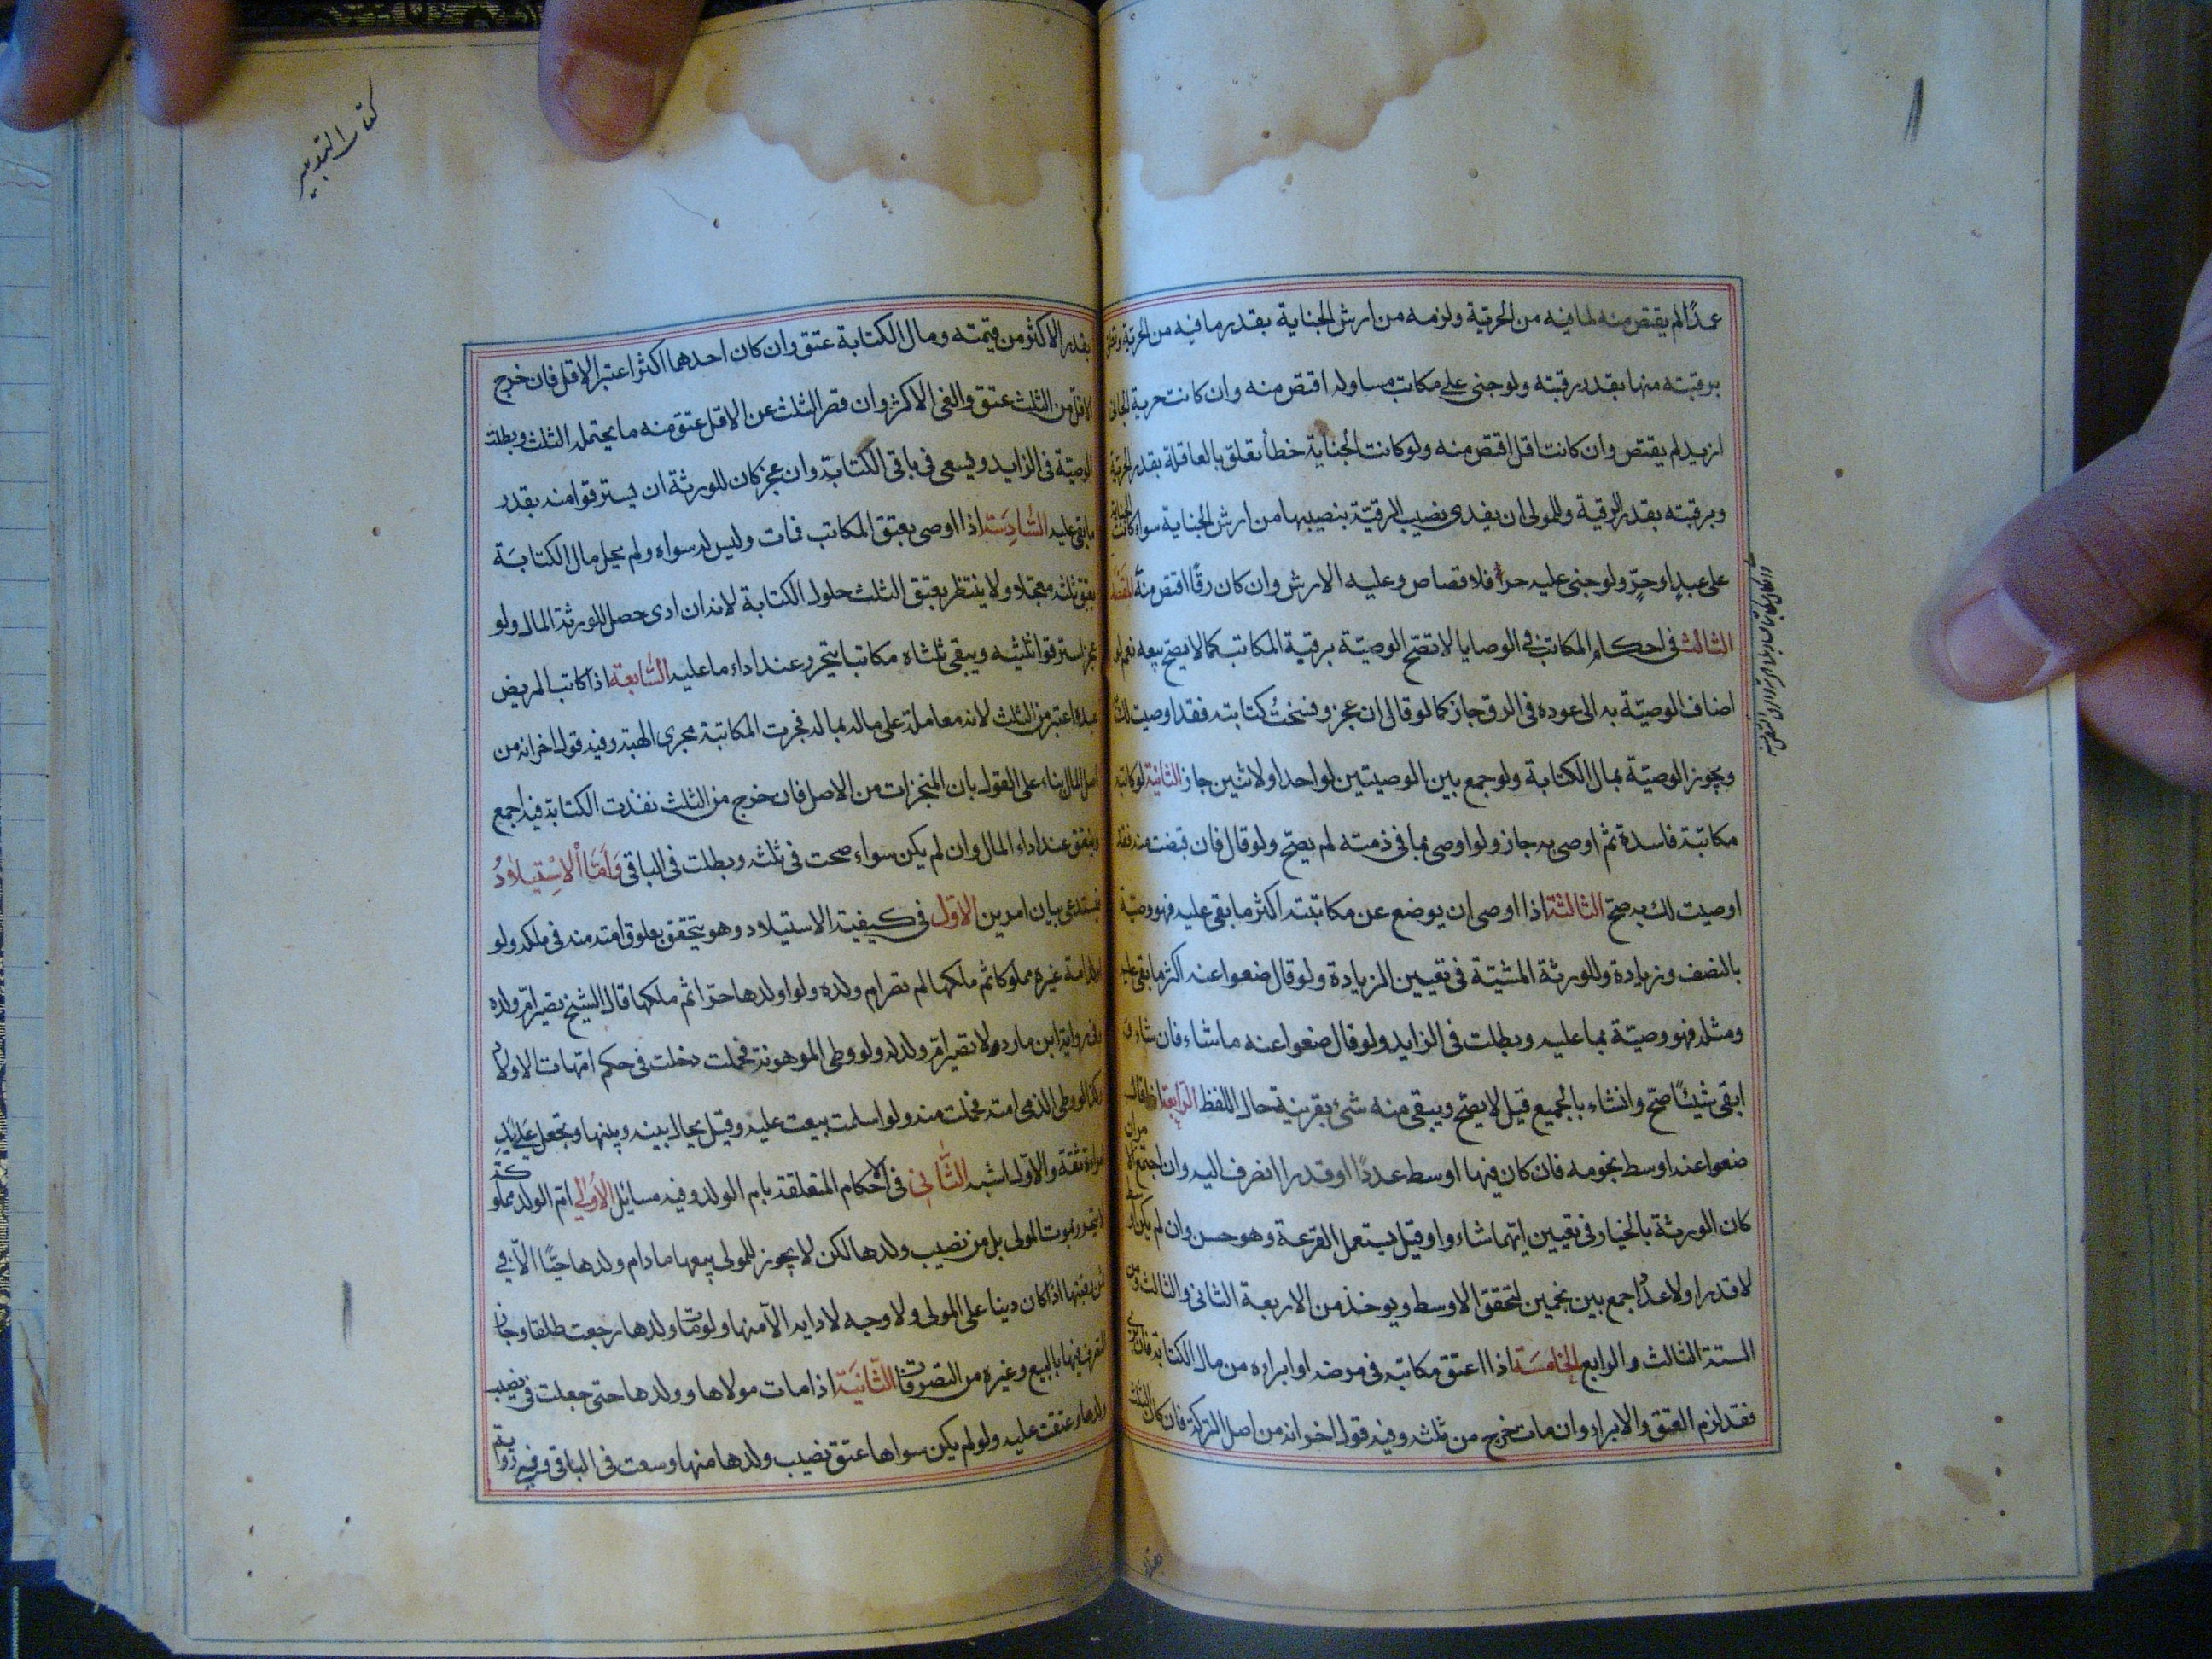 عمدًا لم يقتص منه لما فيه من الحرية ولزمه من ارش الجناية بقدر ما فيه من الحرية وتعلق
برقبته منها بقدر رقبته ولو جنى على مكاتب مساو له اقتص منه وان كانت حرية الجاني
ازيد لم يقتص وان كانت اقل اقتص منه ولو كانت الجناية خطأ تعلق بالعاقلة بقدر الحرية
وبرقبته بقدر الرقية وللمولى ان يفدى نصيب الرقيّة بنصيبها من ارش الجناية سواء كانت الجناية
على عبدٍ او حرٍّ ولو جنى عليه حر فلا قصاص وعليه الارش وان كان رقًا اقتص منه المقصد
الثالث في احكام المكاتب في الوصايا لا تصّح الوصيّة برقبة المكاتب كما لا يصح بيعه نعم لو
اضاف الوصيّة به الى عوده في الرق جاز كما لو قال ان عجز وفسختُ كتابته فقد اوصيت لك
ويجوز الوصيّة بمال الكتابة ولو جمع بين الوصيتين لواحد او لاثنين جاز الثانية لو كاتبه
مكاتبة فاسدة ثم اوصى به جاز ولو اوصى بما في ذمته لم يصح ولو قال فان قبضت منه فقد
اوصيت لك به صح الثالثة اذا اوصى ان يوضع عن مكاتبته اكثر ما بقى عليه فهو وصيّة
بالنصف وزيادة وللورثة المشيّة في تعيين الزيادة ولو قال ضعوا عنه اكثر ما بقى عليه
ومثله فهو وصيّة بما عليه وبطلت في الزايد ولو قال ضعوا عنه ما شاء فان شاء و
ابقى شيئًا صحّ وان شاء بالجميع قيل لا يصح ويبقى منه شئ بقرينة حال اللفظ الرابعة اذا قال
ضعوا عنه اوسط نجومه فان كان فيها اوسط عددًا او قدرا انصرف اليه وان اجتمع الامران
كان الورثة بالخيار في تعيين ايهما شاءوا وقيل يستعمل القرعة وهو حسن وان لم يكن اوسط
لا قدرا ولا عددا جمع بين نجمين لتحقق الاوسط ويوخذ من الاربعة الثانى والثالث ومن
الستة الثالث والرابع الخامسة اذا اعتق مكاتبه في مرضه او ابراه من مال الكتابة فان برئ
فقد لزم العتق والابراء وان مات خرج من ثلثه وفيه قول اخر انه من اصل التركة فان كان الثلث
كتاب التدبير
بقدر الاكثر من قيمته ومال الكتابة عتق وان كان احدهما اكثر اعتبر الاقل فان خرج
الاقل من الثلث عتق والغى الاكثر وان قصر الثلث عن الاقل عتق منه ما يحتمله الثلث وبطلت
الوصيّة في الزايد ويسعى في باقى الكتابة وان عجز كان للورثة ان يسترقوا منه بقدر
ما بقى عليه السَّادِسَة اذا اوصى بعتق المكاتب فمات وليس له سواه ولم يحل مال الكتابَة
يعتق ثلثه معجلا ولا ينتظر بعتق الثلث حلول الكتابة لانه ان ادى حصل للورثة المال ولو
عجز استرقوا ثلثيه ويبقى ثلثاه مكاتبا يتحرر عند اداء ما عليه السَّابعة اذا كاتب المريض
عبده اعتبر من الثلث لانه معاملة على ماله بماله فجرت المكاتبة مجرى الهبة وفيه قول اخر انه من
اصل المال بناء على القول بان المنجزات من الاصل فان خرج من الثلث نفذت الكتابة فيه اجمع
وينعتق عند اداء المال وان لم يكن سواه صحت في ثلثه وبطلت في الباقى وَاَمَّا الاِسْتِيلادُ
فيستدعى بيان امرين الاوّل في كيفية الاستيلاد وهو يتحقق بعلوق امته منه في ملكه ولو
اولد امة غيره مملوكا ثم ملكها لم تصر ام ولده ولو اولدها حرّا ثم ملكها قال الشيخ تصير ام ولده
وفى رواية ابن مارد لا تصير ام ولد له ولو وطى المرهونة فحملت دخلت في حكم امّهات الاولاد
وكذا لو وطى الذمى امته فحملت منه ولو اسلمت بيعت عليه وقيل يحال بينه وبينها وتجعل على يد
امراة ثقة والاوّل اشبه الثَّانى في الاحكام المتعلقة بام الولد وفيه مسائل الاولى ام الولد مملوكة
لا يتحرر بموت المولى بل من نصيب ولدها لكن لا يجوز للمولى بيعها ما دام ولدها حيًّا الّا في
ثمن رقبتها اذا كان دينا على المولى ولا وجه لادايه الّا منها ولو مات ولدها رجعت طلقا وجاز
التصرف فيها بالبيع وغيره من التصرفات الثّانيَة اذا مات مولاها وولدها حى جعلت في نصيب
ولدها وعتقت عليه ولو لم يكن سواها عتق نصيب ولدها منها وسعت في الباقى وفى رواية